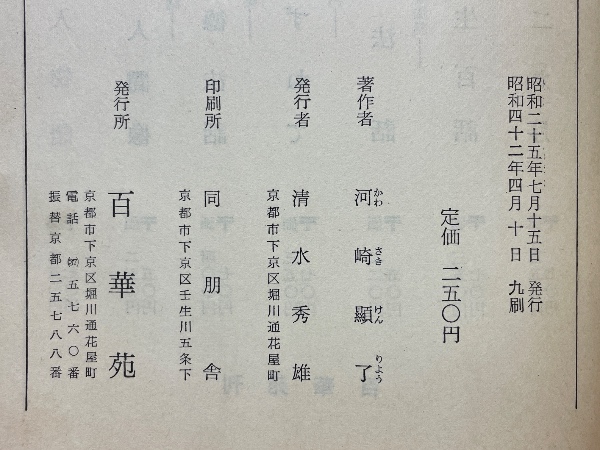 昭和二十五年七月十五日 発行
昭和四十二年四月十日 九刷
定価 二五〇円
著作者 河崎顯了
かわさきけんりよう
発行者 清水秀雄
京都市下京区堀川通花屋町
印刷所 同朋舎
京都市下京区壬生川五条下
発行所 百華苑
京都市下京区堀川通花屋町
電話 ㉟五七六〇番
振替京都二五七八八番